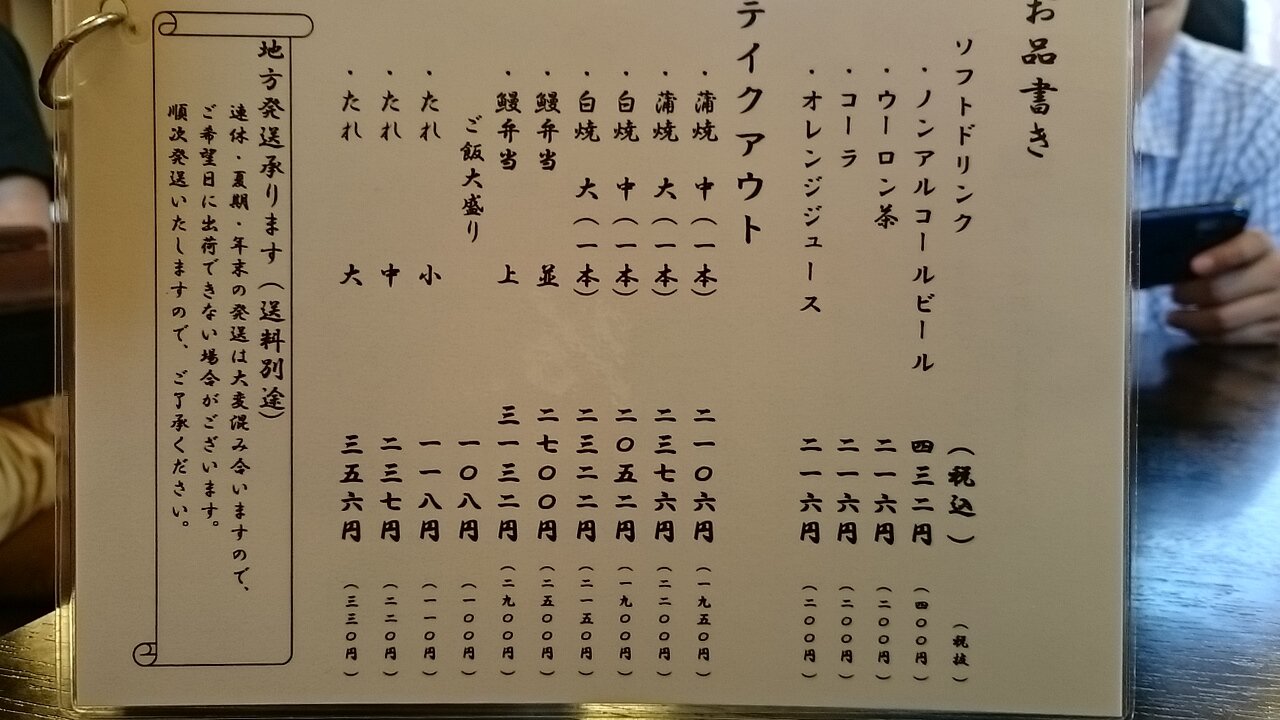 お品書き
ソフトドリンク （税込） （税抜）
・ノンアルコールビール 四三二円 （四〇〇円）
・ウーロン茶 二一六円 （二〇〇円）
・コーラ 二一六円 （二〇〇円）
・オレンジジュース 二一六円 （二〇〇円）
テイクアウト
・蒲焼 中（一本） 二一〇六円 （一九五〇円）
・蒲焼 大（一本） 二三七六円 （二二〇〇円）
・白焼 中（一本） 二〇五二円 （一九〇〇円）
・白焼 大（一本） 二三二二円 （二一五〇円）
・鰻弁当 並 二七〇〇円 （二五〇〇円）
・鰻弁当 上 三一三二円 （二九〇〇円）
ご飯大盛り 一〇八円 （一〇〇円）
・たれ 小 一一八円 （一一〇円）
・たれ 中 二三七円 （二二〇円）
・たれ 大 三五六円 （三三〇円）
地方発送承ります（送料別途）
連休・夏期・年末の発送は大変混み合いますので、
ご希望日に出荷できない場合がございます。
順次発送いたしますので、ご了承ください。